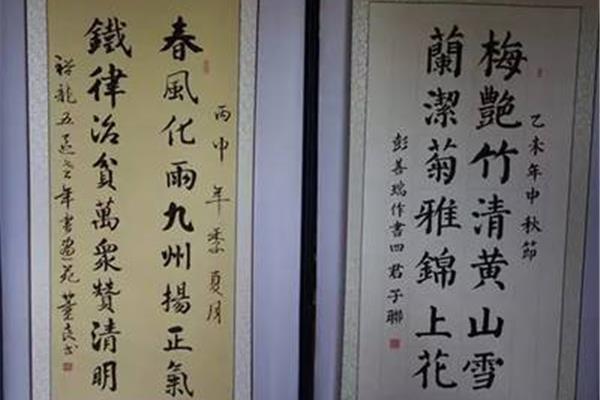 乙未年中秋節
梅艷竹清黄山雪
蘭潔菊雅錦上花
彭善瑞作書四君子聯
丙申年季夏月
春風化雨九州揚正氣
鐵律治貧萬衆贊清明
龍五老年書画苑